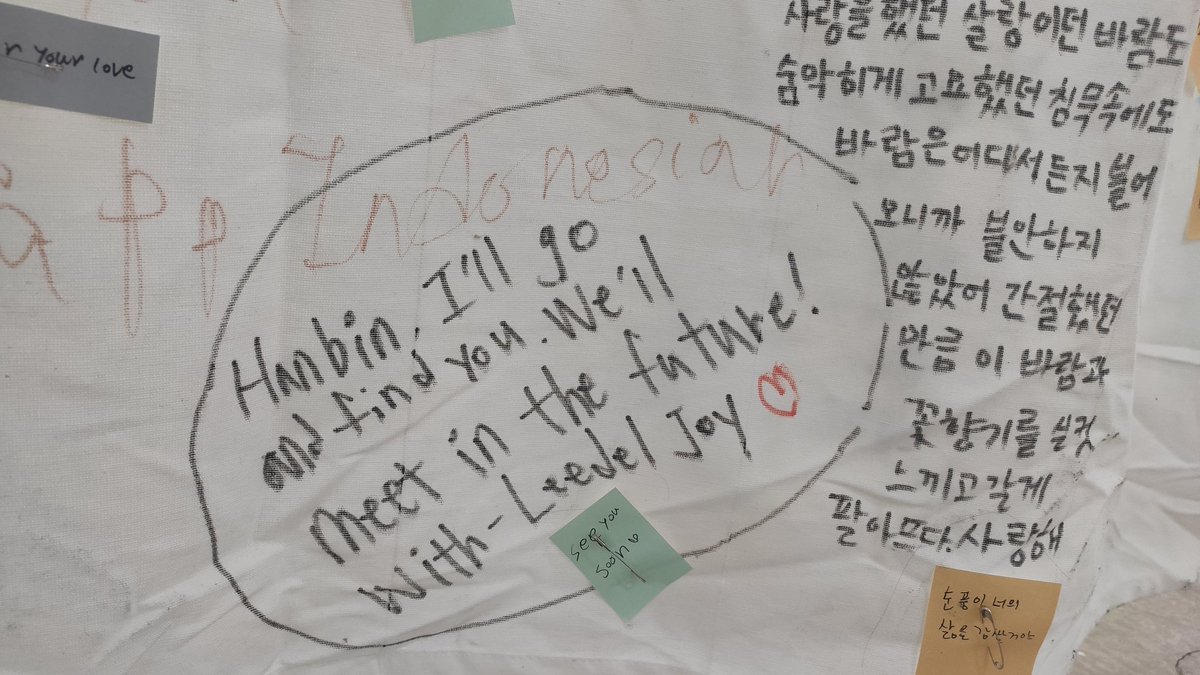 r your love
App Indonesian
Hanbin, I'll go
and find you. We'll
meet in the future!
with - Leedel Joy
see you
soon
사랑을 했던 살랑이던 바람도
숨막히게 고요했던 침묵속에도
바람은 어디서든지 불어
오니까 불안하지
않았어 간절했던
만큼 이 바람과
꽃향기를 실컷
느끼고갈게
팔아프다.사랑해
눈품이 너의
삶을